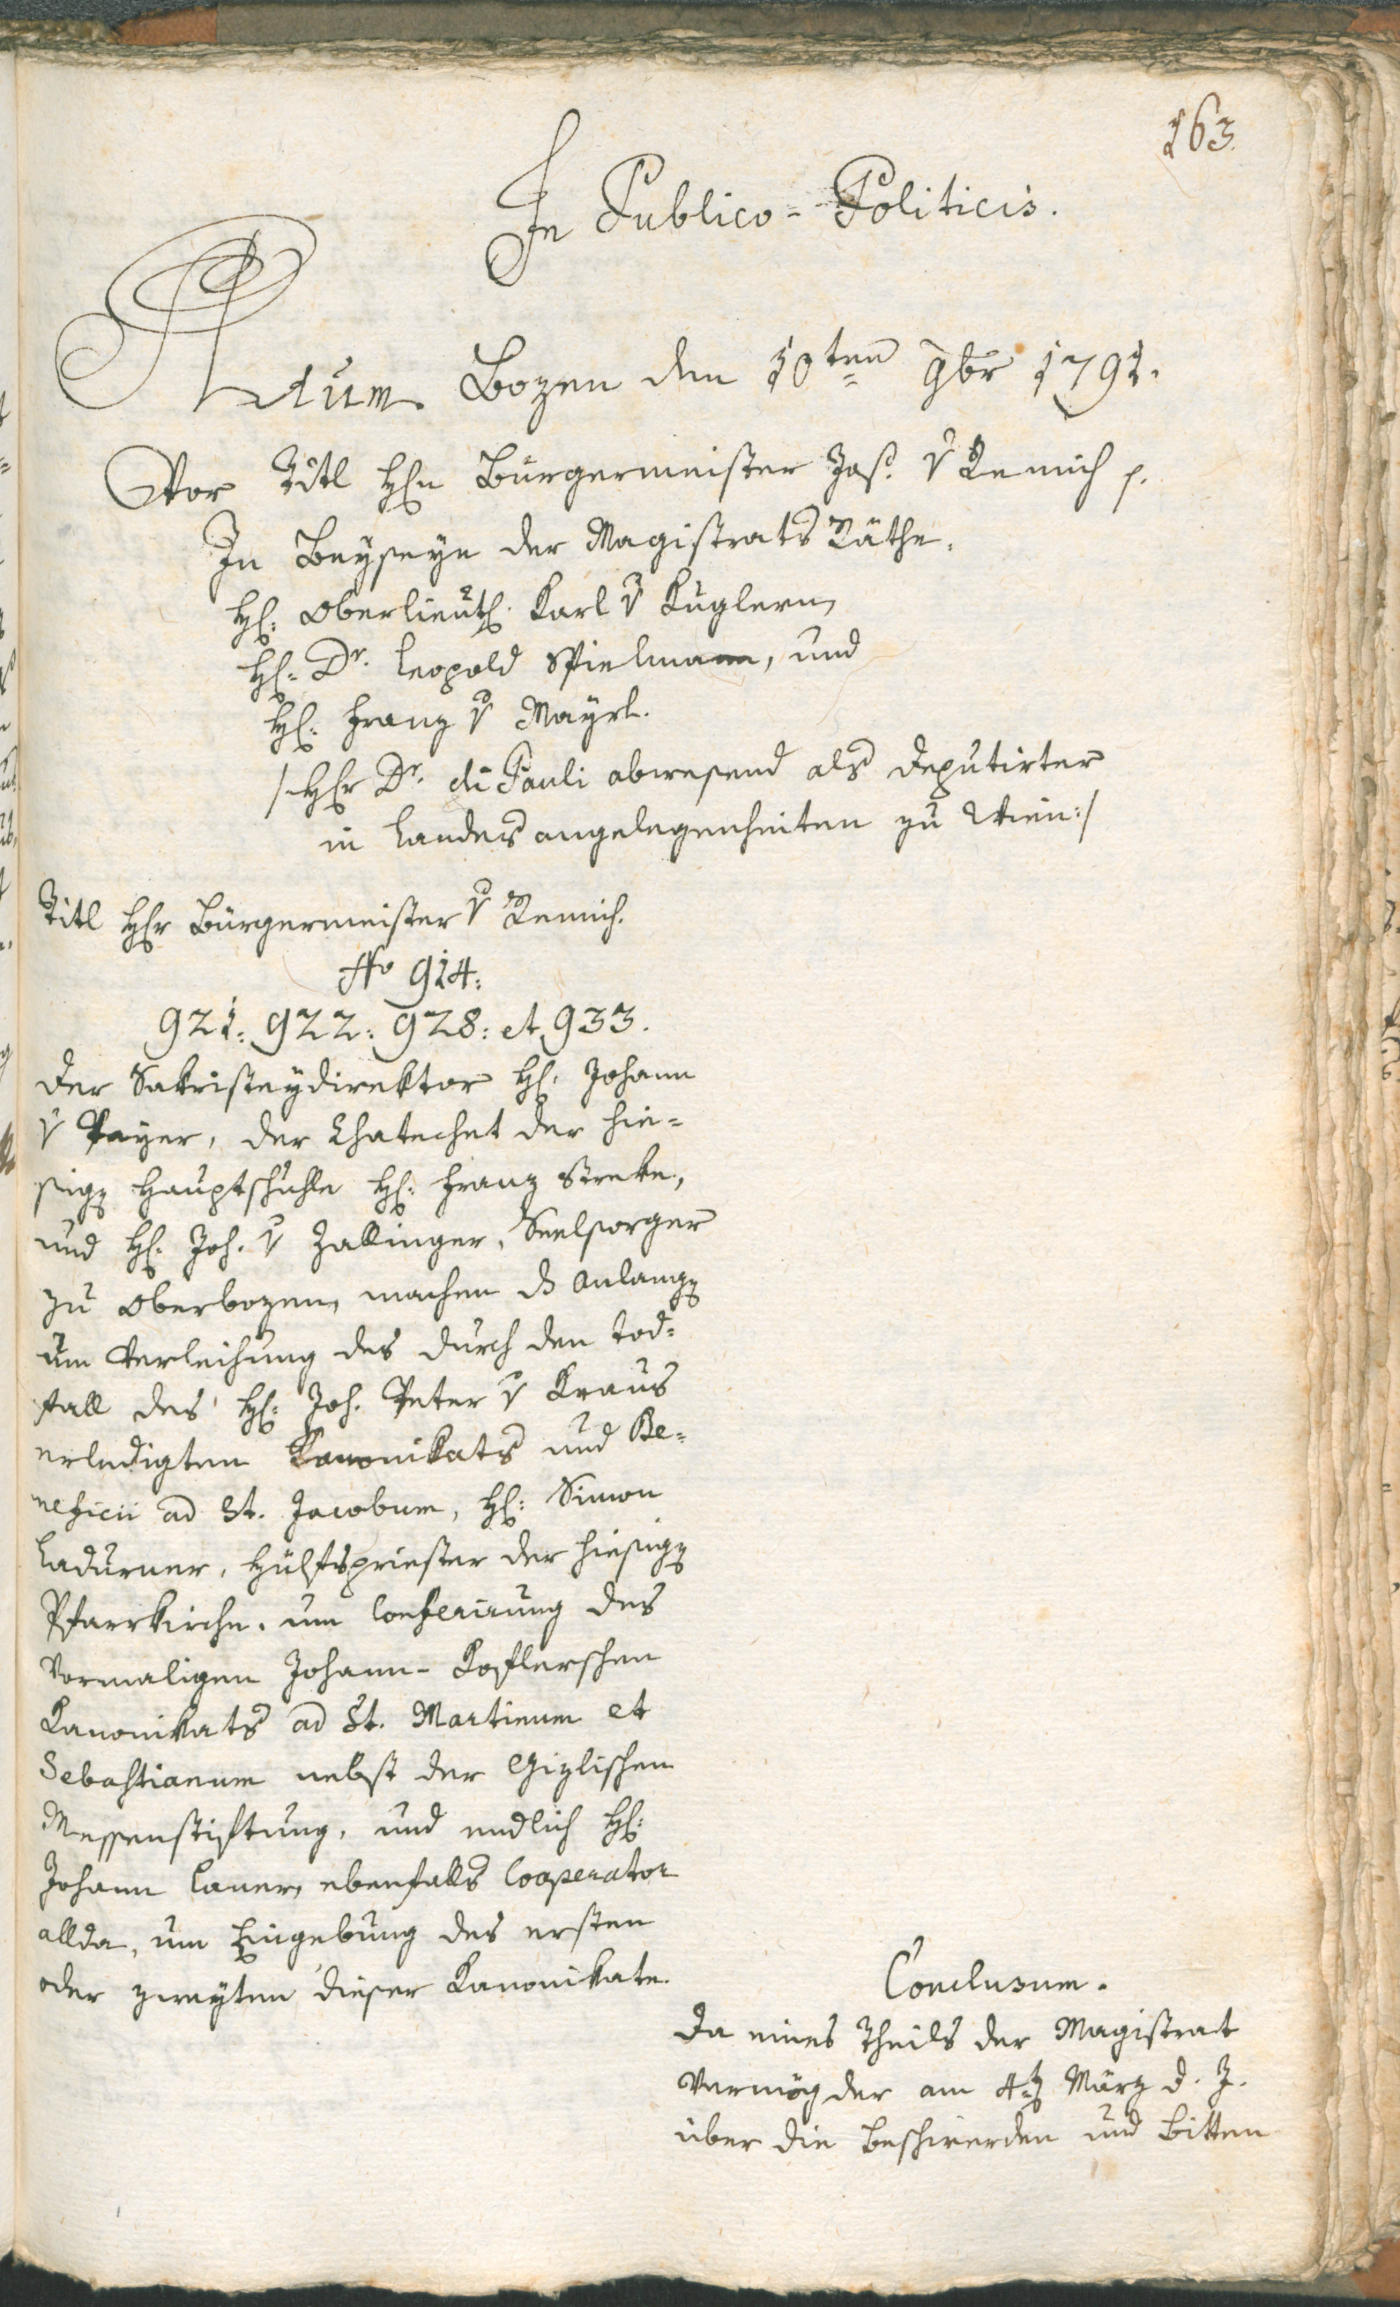 163.
In Publico-Politicis.
Actum Bozen den 10ten 9br 1791.
Vor Titl H(er)n Bürgermeister Jos. v Remich p.
In Beyseyn der Magistrats Räthe.
H: Oberlieut: Karl v Kuglern,
H: Dr. Leopold Spielmann, und
H: Franz v Mayrl.
/: Hr Dr. di Pauli abwesend als Deputirter
in Landesangelegenheiten zu Wien :/
Titl Hr Bürgermeister v Remich.
No 914:
921: 922: 928: et 933.
Der Sakristeydirektor H: Johann
v Payer, der Chatechet der hie-
sigen Hauptschulle H: Franz Streke,
und H: Joh. v Zallinger, Seelsorger
zu Oberbozen, machen das Anlangen
um Verleihung des durch den Tod-
fall des H: Joh. Peter v Kraus
erledigten Kanonikats und Be-
neficii ad St. Jacobum, H: Simon
Ladurner, Hülfspriester der hiesigen
Pfarrkirche, um Conferirung des
vormaligen Johann-Koflerschen
Kanonikats ad St. Martinum et
Sebastianum nebst der Gizlischen
Messenstiftung, und endlich H:
Johann Caner, ebenfalls Cooperator
allda, um Eingebung des ersten
oder zweyten dieser Kanonikate.
Conclusum.
Da eines Theils der Magistrat
vermög der am 4ten März d. J.
über die Beschwerden und Bitten